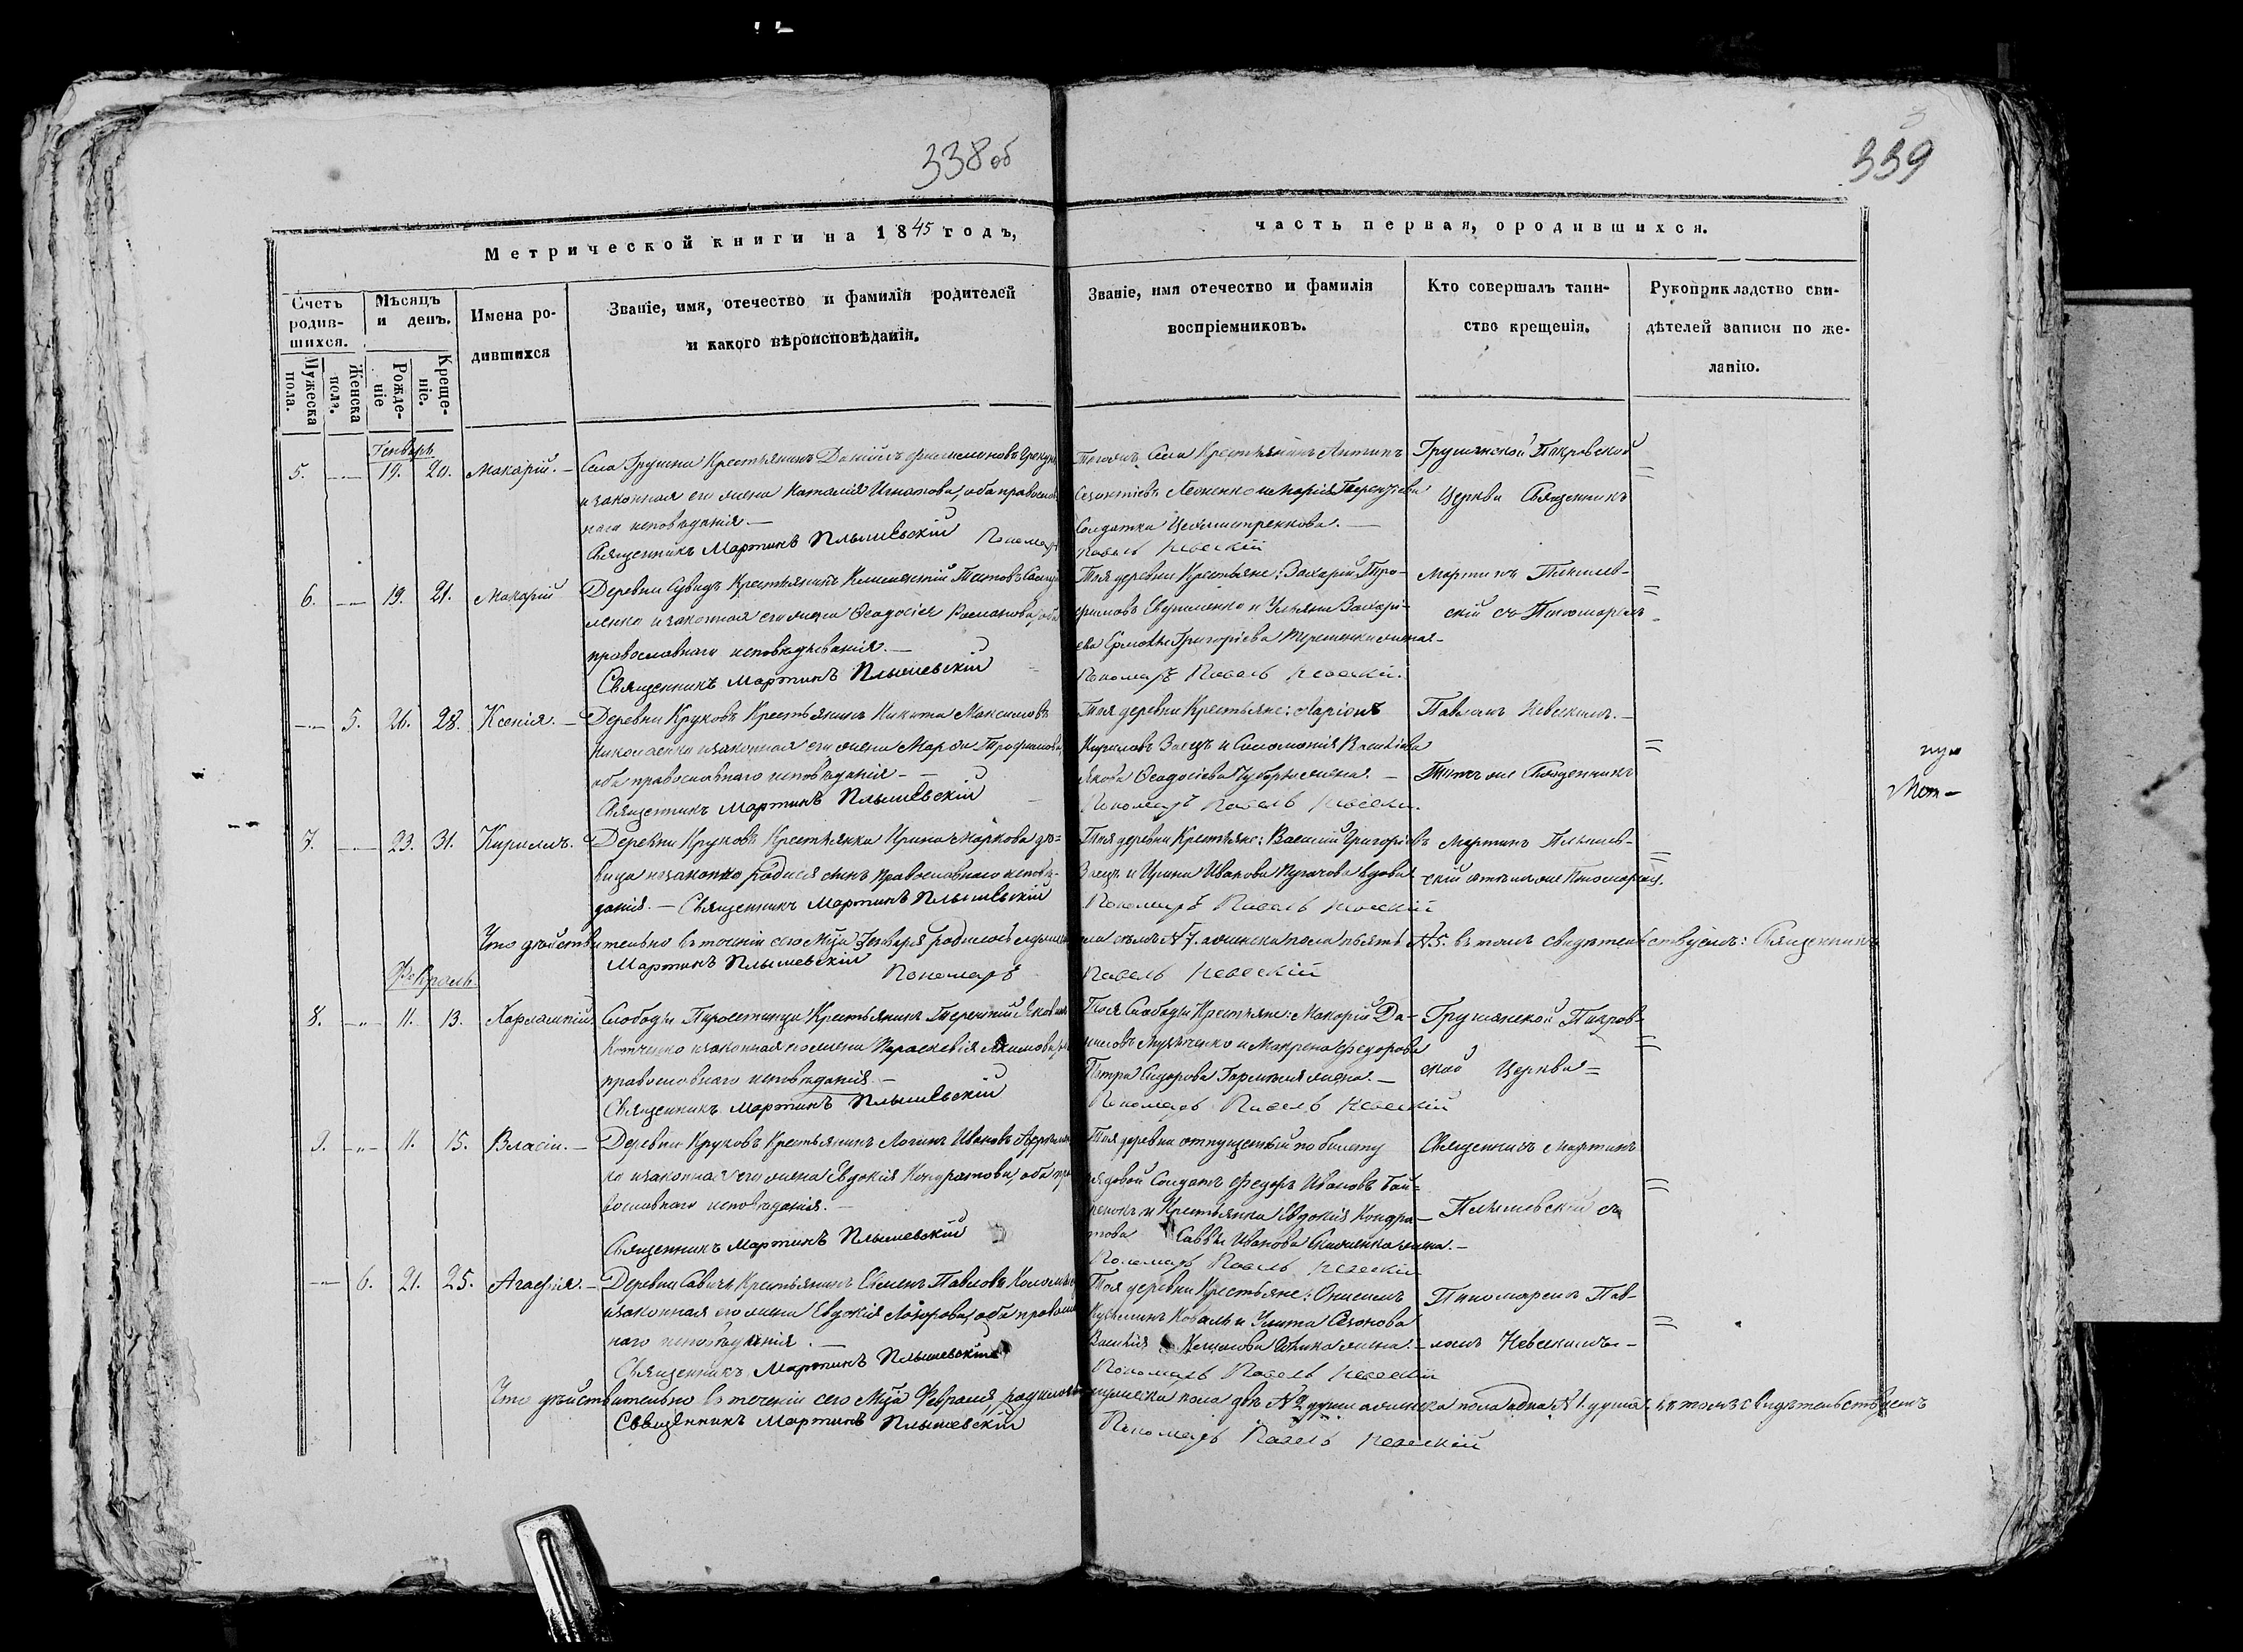 338 об
3
339
Метрической книги на 1845 годъ,
часть первая, ородившихся.
Счетъ родив-шихся.
Мужеска пола.
Женска пола.
Мѣсяцъ и день.
Рожде-ніе
Креще-ніе.
Имена ро-
дившихся
Званіе, имя, отечество и фамилія родителей
и какого вѣроисповѣданія.
Званіе, имя отечество и фамилія
воспріемниковъ.
Кто совершалъ таин-
ство крещенія.
Рукоприкладство сви-
дѣтелей записи по же-
ланію.
Генварь
5. 19. 20. Макарій.
Села Грушки Крестьянинъ Даніилъ Филимоновъ
и законная его жена Наталія Игнатова, оба православ
наго исповѣданія.
Священникъ Мартинъ Плышевскій Пономарь
Тогожъ Села Крестьянинъ Антипъ
Леоненко и Марія Терентіева
Солдатка
Павелъ Невескій
Грушанской Покровской
Церкви Священникъ
6. 19. 21. Макарій
Деревни Крестьянинъ Климентій Титовъ
ленко и законная его жена Ѳеодосія Романова, оба
православнаго исповѣдыванія.
Священникъ Мартинъ Плышевскій
Тоя деревни Крестьяне: Захарій Тро-
фимовъ Ефименко и Ульяна Захарі-
ева Григоріева жена
Пономарь Павелъ Невескій.
Мартинъ Плышев-
скій съ Пономаремъ
5. 26. 28. Ксенія.
Деревни Круковъ Крестьянинъ Никита Максимовъ
Николаенко и законная его жена Марфа Трофимова
оба православнаго исповѣданія
Священникъ Мартинъ Плышевскій
Тоя деревни Крестьяне: Ларіонъ
Кириловъ Заецъ и Соломонія Василіева
Якова Ѳеодосіева жена.
Пономарь Павелъ Невескі.
Павломъ Невескимъ.
Тотъ же Священникъ
7. 23. 31. Кириллъ.
Деревни Круковъ Крестьянка Ирина Маркова дѣ=
вица незаконно родися сынъ православнаго исповѣ-
данія. Священникъ Мартинъ Плышевскій
Тоя деревни Крестьяне: Василій Григоріевъ
Заецъ и Ирина Иванова Пугачова вдова
Пономарь Павелъ Невескій
Мартинъ Плышев-
скій стѣмъ же Пономаремъ.
Что дѣйствительно въ теченіи сего Мца Генваря родилось пола семь №7. женска пола пьять №5. въ томъ свидѣтельствуемъ: Священникъ
Мартинъ Плышевскій Пономарь Павелъ Невескій
Февраль.
8. 11. 13. Харлампій
Слободы Крестьянинъ Терентій Яковлевъ
Котченко и законная его жена Параскевія Якимова
православнаго исповѣданія.
Священникъ Мартинъ Плышевскій
Тоя Слободы Крестьяне: Макарій Да-
ниловъ и Макрена Федорова
Петра Сидорова жена.
Пономарь Павелъ Невескій
Грушанской Покров-
ской Церкви =
9. 11. 15. Власій.
Деревни Круковъ Крестьянинъ Логинъ Ивановъ
ко и законная его жена Евдокія Кондратова, оба пра
вославнаго исповѣданія.
Священникъ Мартинъ Плышевскій
Тоя деревни отпущенный по билету
рядовой Солдатъ Федоръ Ивановъ
и Крестьянка Евдокія Кондра-
това Саввы Иванова жена.
Пономарь Павелъ Невескій
Священникъ Мартинъ
Плышевскій съ
6. 21. 25. Агафія.
Деревни Савичъ Крестьянинъ Евменъ Павловъ
и законная его жена Евдокія Лазорова, оба правосла
наго исповѣданія.
Священникъ Мартинъ Плышевскій
Тоя деревни Крестьяне: Онисимъ
Кузминъ Коваль и Улита Сазонова
Василія жена.
Пономарь Павелъ Невескій
Пономаремъ Пав-
ломъ Невескимъ
Что дѣйствительно въ теченіи сего Мца Февраля, родилось мужеска пола двѣ №2 души а женска пола одна №1. душа. въ томъ свидѣтельствуемъ
Священникъ Мартинъ Плышевскій
Пономарь Павелъ Невескій